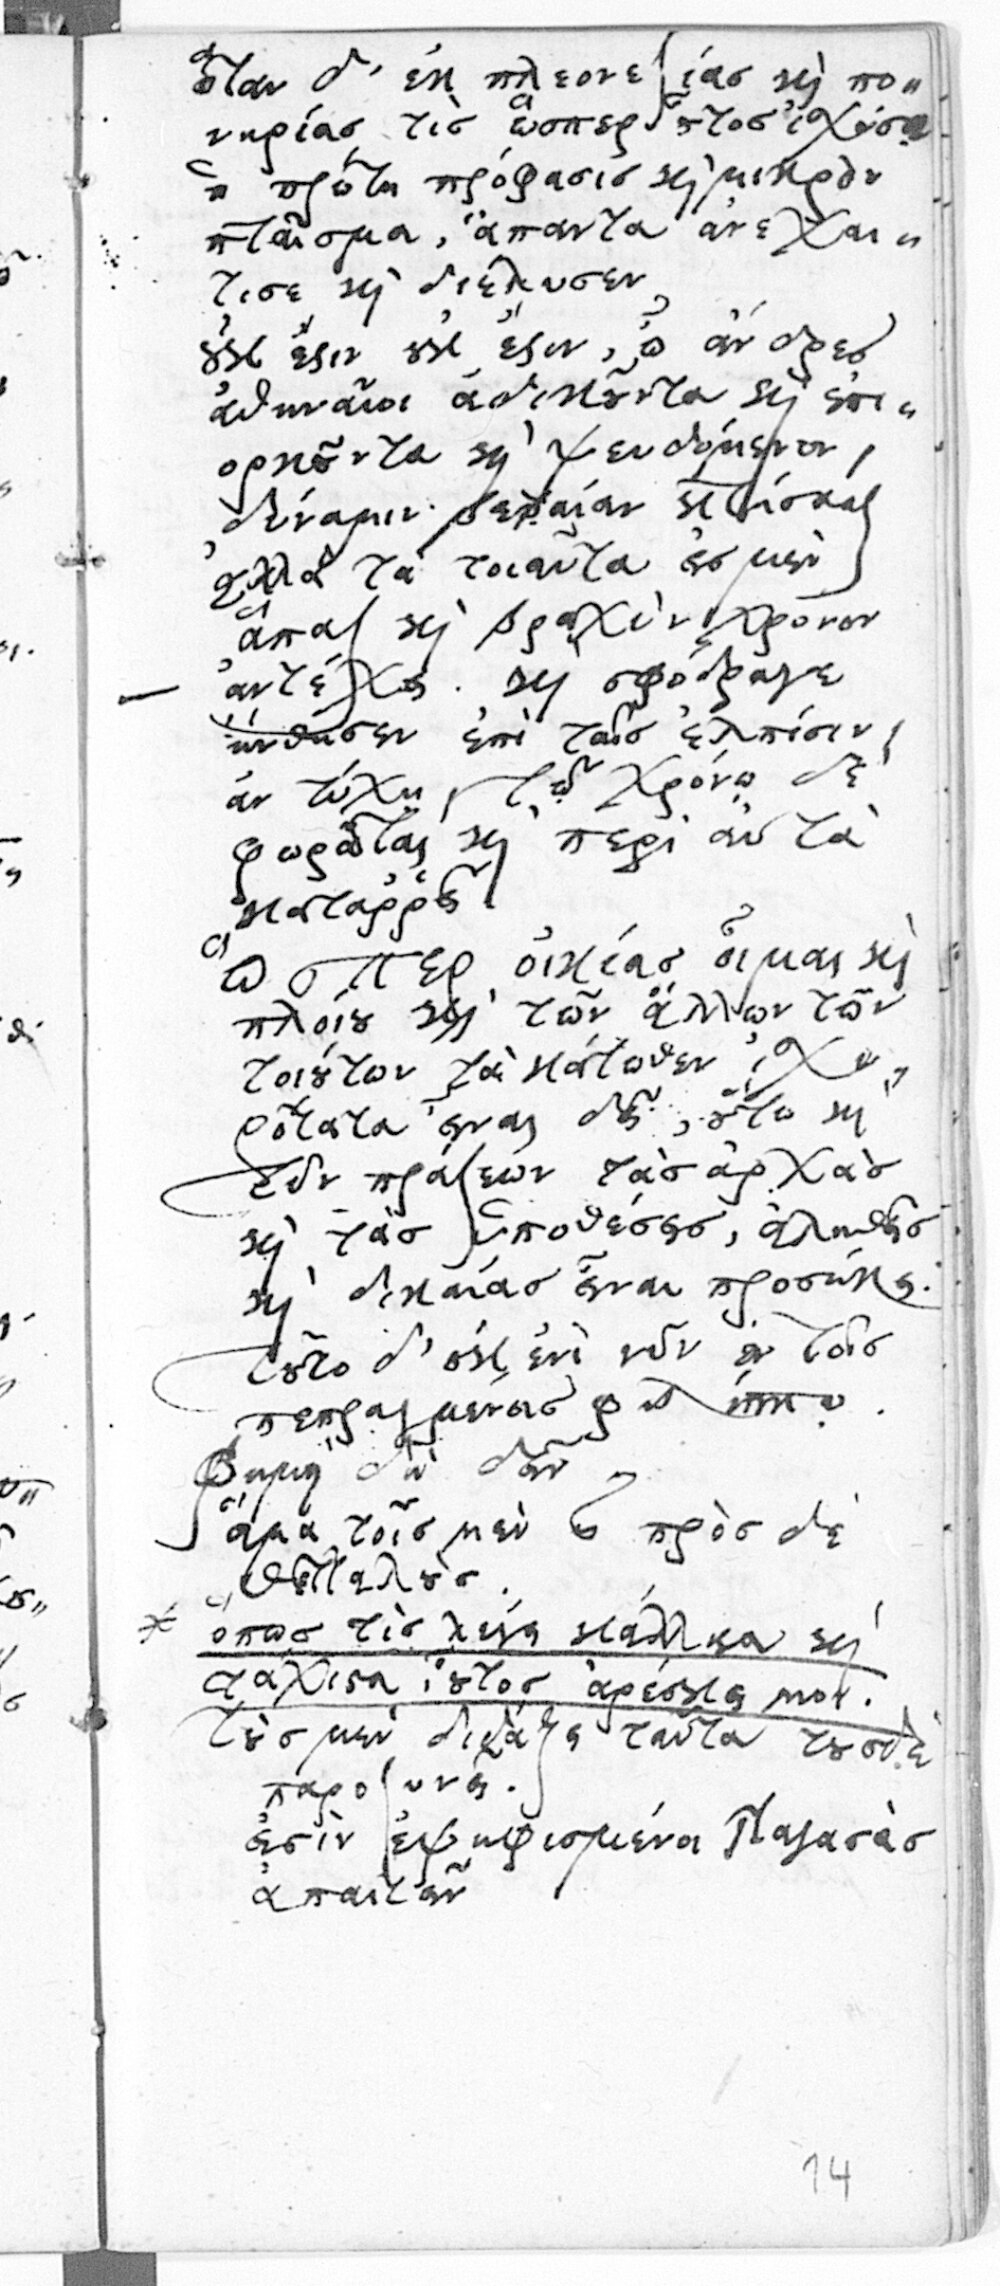 ὅταν δ' ἐκ πλεονεξίας καὶ πο„
νηρίας τὶς ὥσπερ οὗτος ἰχύσῃ
ἡ πρώτη πρόφασις καὶ μικρὸν
πταῖσμα, ἅπαντα ἀνεχαι„
τισε καὶ διέλυσεν
οὐκ ἔστιν οὐκ ἔστιν, ὦ ἄνδρες
ἀθηναῖοι ἀδικοῦντα καὶ ἐπι„
ορκοῦντα καὶ ψευδόμενον,
δύναμιν βεβαίαν κτίσασ
ἀλλὰ τὰ τοιαῦτα εἰς μὲν
ἅπαξ καὶ βραχὺν χρόνον
ἀντέχει. καὶ σφόδραγε
ἤνθησεν ἐπὶ ταῖς ἐλπίσιν,
ἂν τύχῃ, τῷ χρόνῳ δὲ
φωρᾶται καὶ περὶ αὐτὰ
καταῤῥεῖ.
ὥσπερ οἰκίας οἶμαι καὶ
πλοίου καὶ τῶν ἄλλων τῶν
τοιούτων τὰ κάτωθεν ἰχυ„
ρότατα εἶναι δεῖ, οὕτω καὶ
τῶν πράξεων τὰς ἀρχὰς
καὶ τὰς ὑποθέσεις, ἀληθεῖς
καὶ δικαίας εἶναι προσήκει.
τοῦτο δ' οὐκ ἔνι νῦν ἐν τοῖς
πεπραγμένοις φιλίππῳ.
φημὶ δὴ δεῖν
ἅμα τοῖς μὲν πρὸς δὲ
θετταλούς.
* ὅπως τὶς λέγει κάλλιστα καὶ
τάχιστα οὕτος ἀρέσκει μοι.
τοὺς μὲν διδάξει ταῦτα τοὺς δὲ
παροξυνεῖ.
εἰσὶν ἐψηφισμένοι Παγασὰς
ἀπαιτεῖν
14